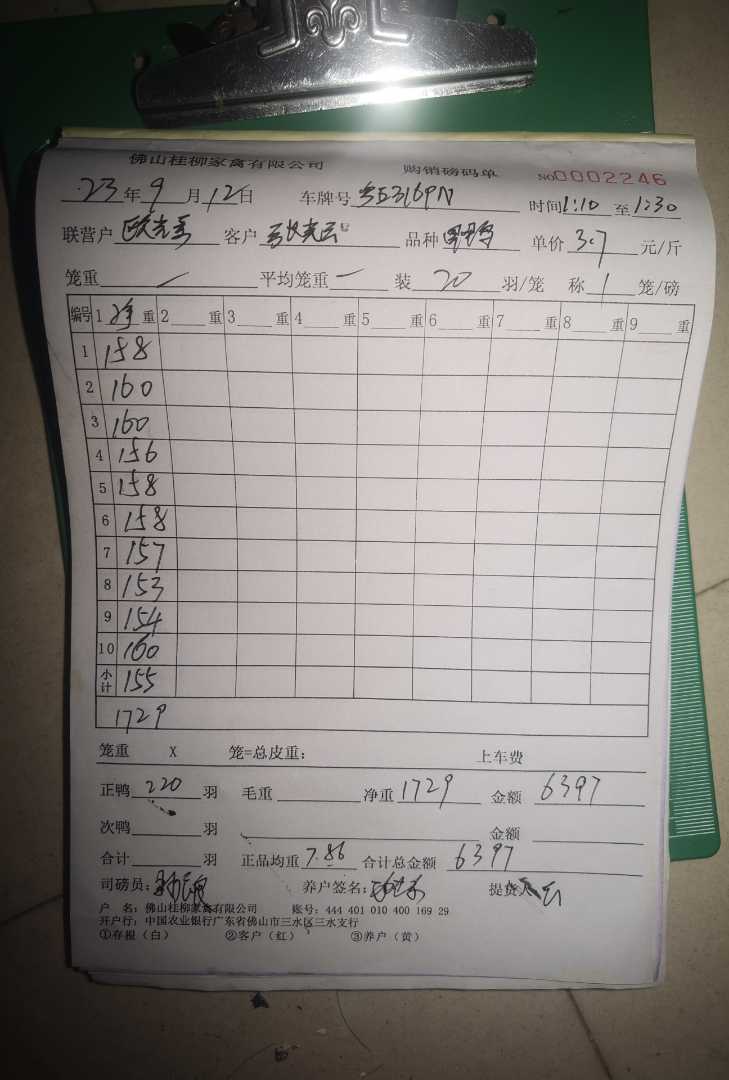 佛山桂柳家禽有限公司 购销磅码单 No0002246
23年9月12日 车牌号 粤E316PN 时间1:10至1:30
联营户 客户 品种 单价3.7元/斤
笼重 一 平均笼重 一 装 20 羽/笼 称 1 笼/磅
编号 1 净重 2 重 3 重 4 重 5 重 6 重 7 重 8 重 9 重
1 158
2 160
3 160
4 156
5 158
6 158
7 157
8 153
9 154
10 160
小计 155
1729
笼重 X 笼=总皮重: 上车费
正鸭 220 羽 毛重 净重 1729 金额 6397
次鸭 羽 金额
合计 羽 正品均重 7.86 合计总金额 6397
司磅员: 养户签名: 提货人
户 名: 佛山桂柳家禽有限公司 账号: 444 401 010 400 169 29
开户行: 中国农业银行广东省佛山市三水区三水支行
①存根(白) ②客户(红) ③养户(黄)